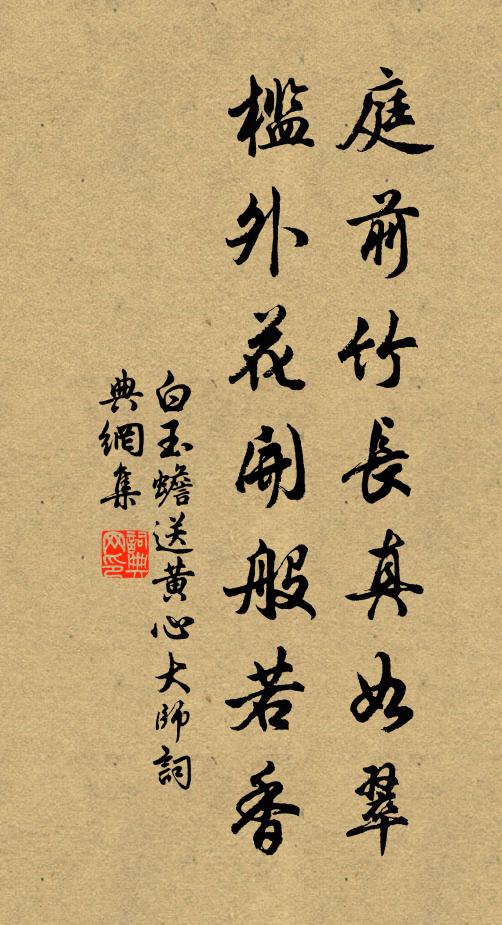 庭前竹長真如翠
檻外花開般若香
白玉蟾送黄心大師詞
典網集
詞典
网印